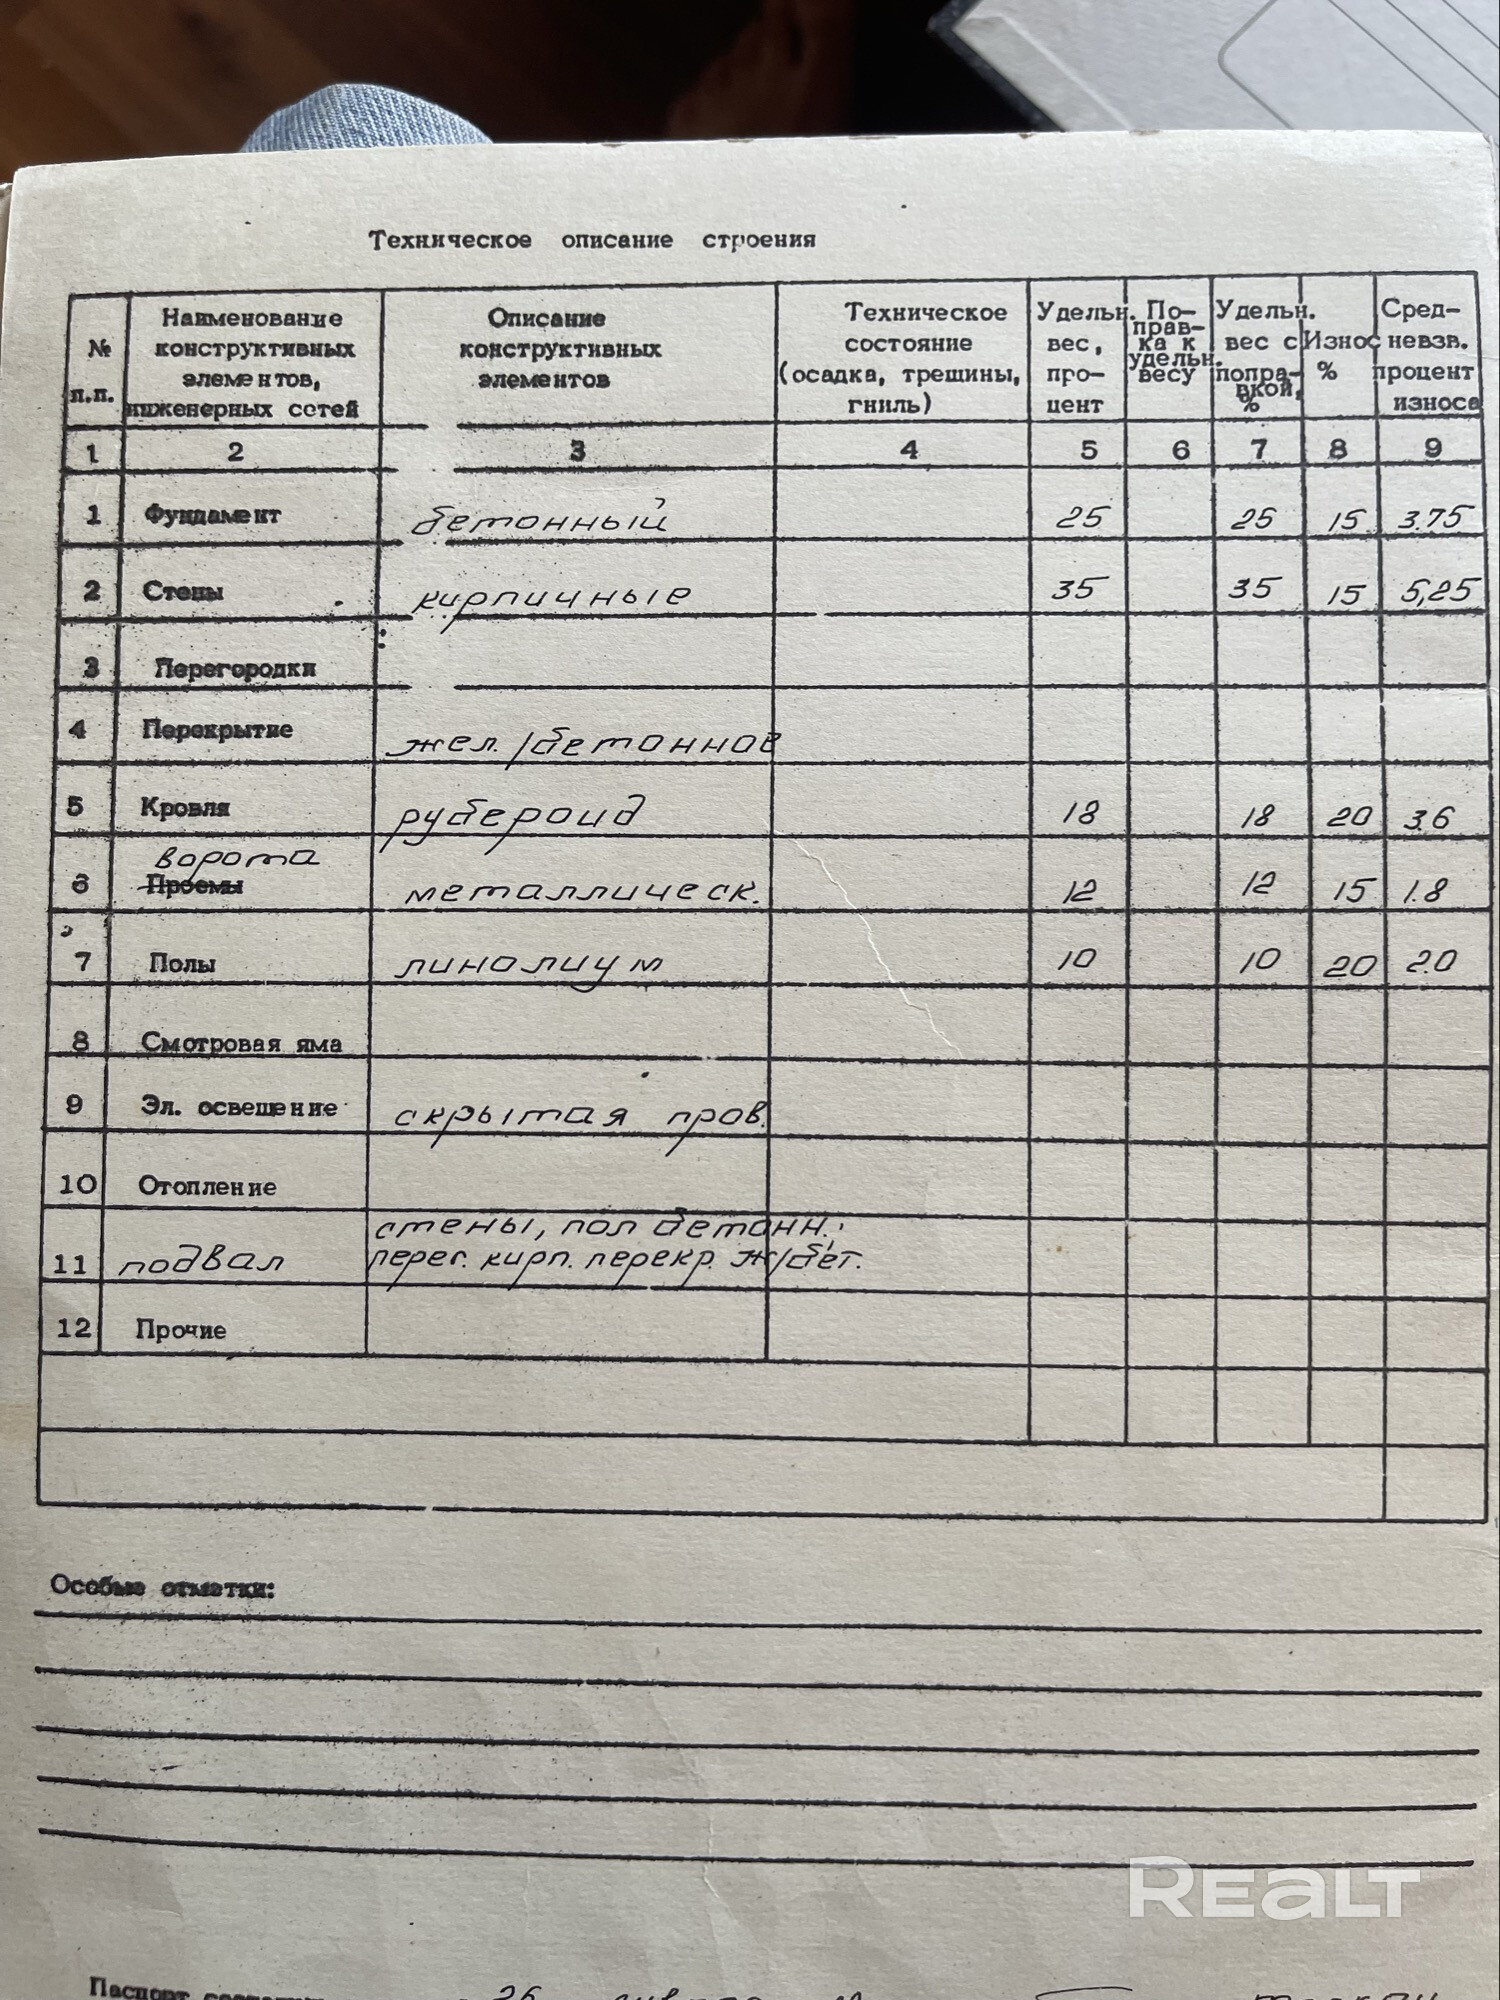 Техническое описание строения
№ п.п.
Наименование конструктивных элементов, инженерных сетей
Описание конструктивных элементов
Техническое состояние (осадка, трещины, гниль)
Удельн. вес, про-цент
По-прав-ка к удельн. весу
Удельн. вес с попра-вкой, %
Износ %
Сред-невзв. процент износа
1 2 3 4 5 6 7 8 9
1 Фундамент бетонный 25 25 15 3.75
2 Стены кирпичные 35 35 15 5,25
3 Перегородки
4 Перекрытие жел./бетонное
5 Кровля рубероид 18 18 20 3.6
ворота
6 Проемы металлическ. 12 12 15 1.8
7 Полы линолиум 10 10 20 2.0
8 Смотровая яма
9 Эл. освещение скрытая пров.
10 Отопление
стены, пол бетонн.;
11 подвал перег. кирп. перекр. ж/бет.
12 Прочие
Особые отметки:
REALT
Паспорт